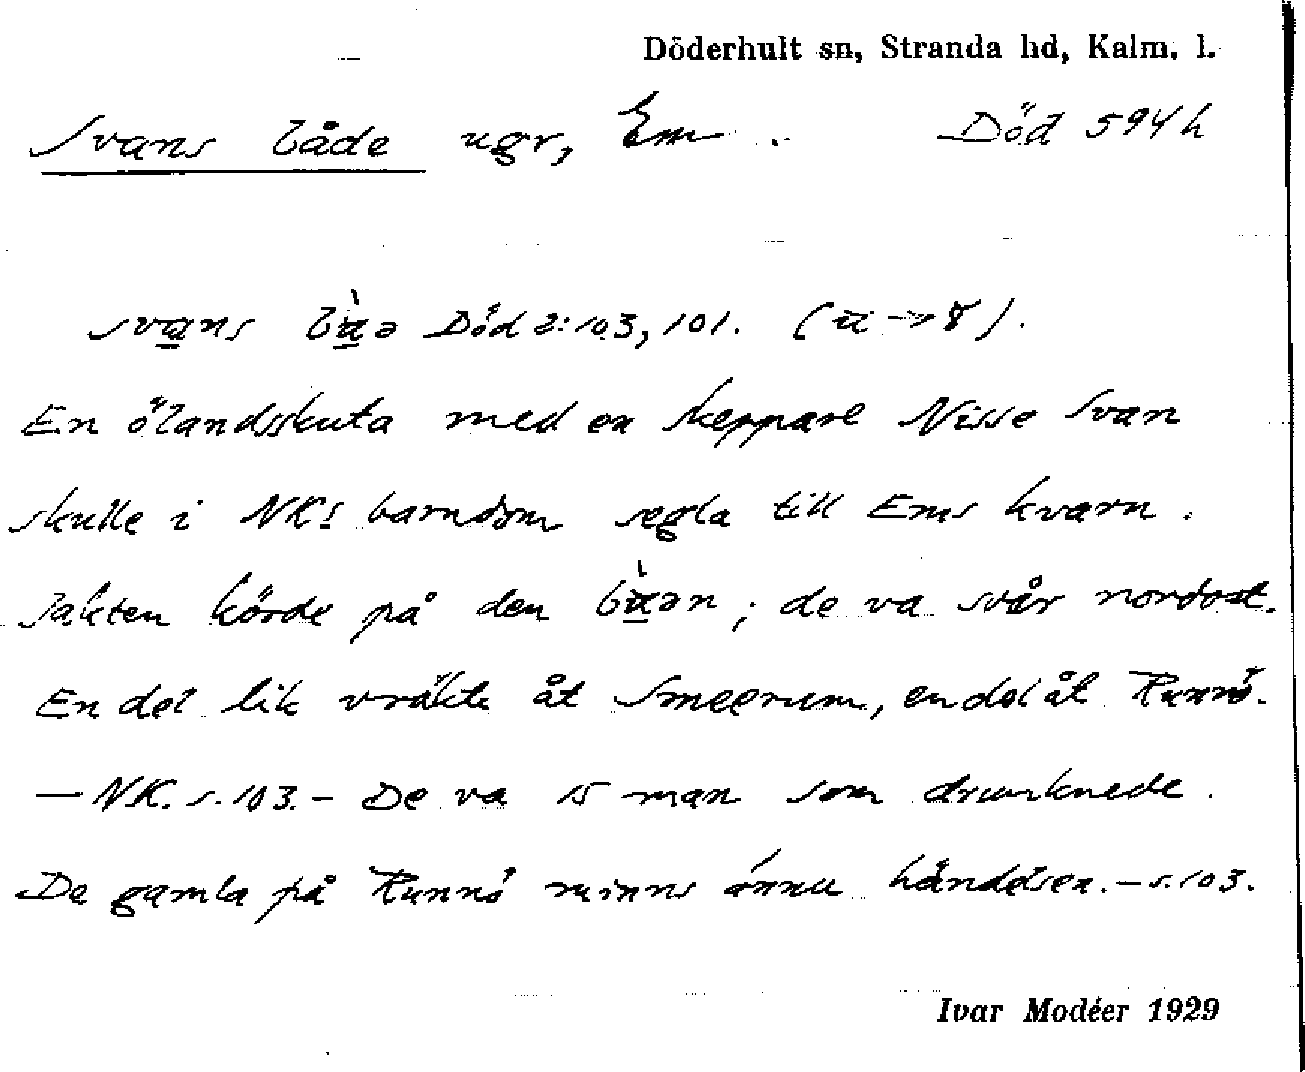 Döderhult sn, Stranda hd, Kalm. l.
Svans både ugr, Em. Död 594 h
svans bùə Död 2:103, 101. (u → ɤ).
En ölandsskuta med en skeppare Nisse Svan
skulle i NKs barndom segla till Ems kvarn.
Jakten körde på den bùən; de va svår nordost.
En del lik vräkte åt Smeerum, en del åt Runnö.
— NK. s. 103. – De va 15 man som drunknede.
De gamla på Runnö minns ännu händelsen. – s. 103.
Ivar Modéer 1929